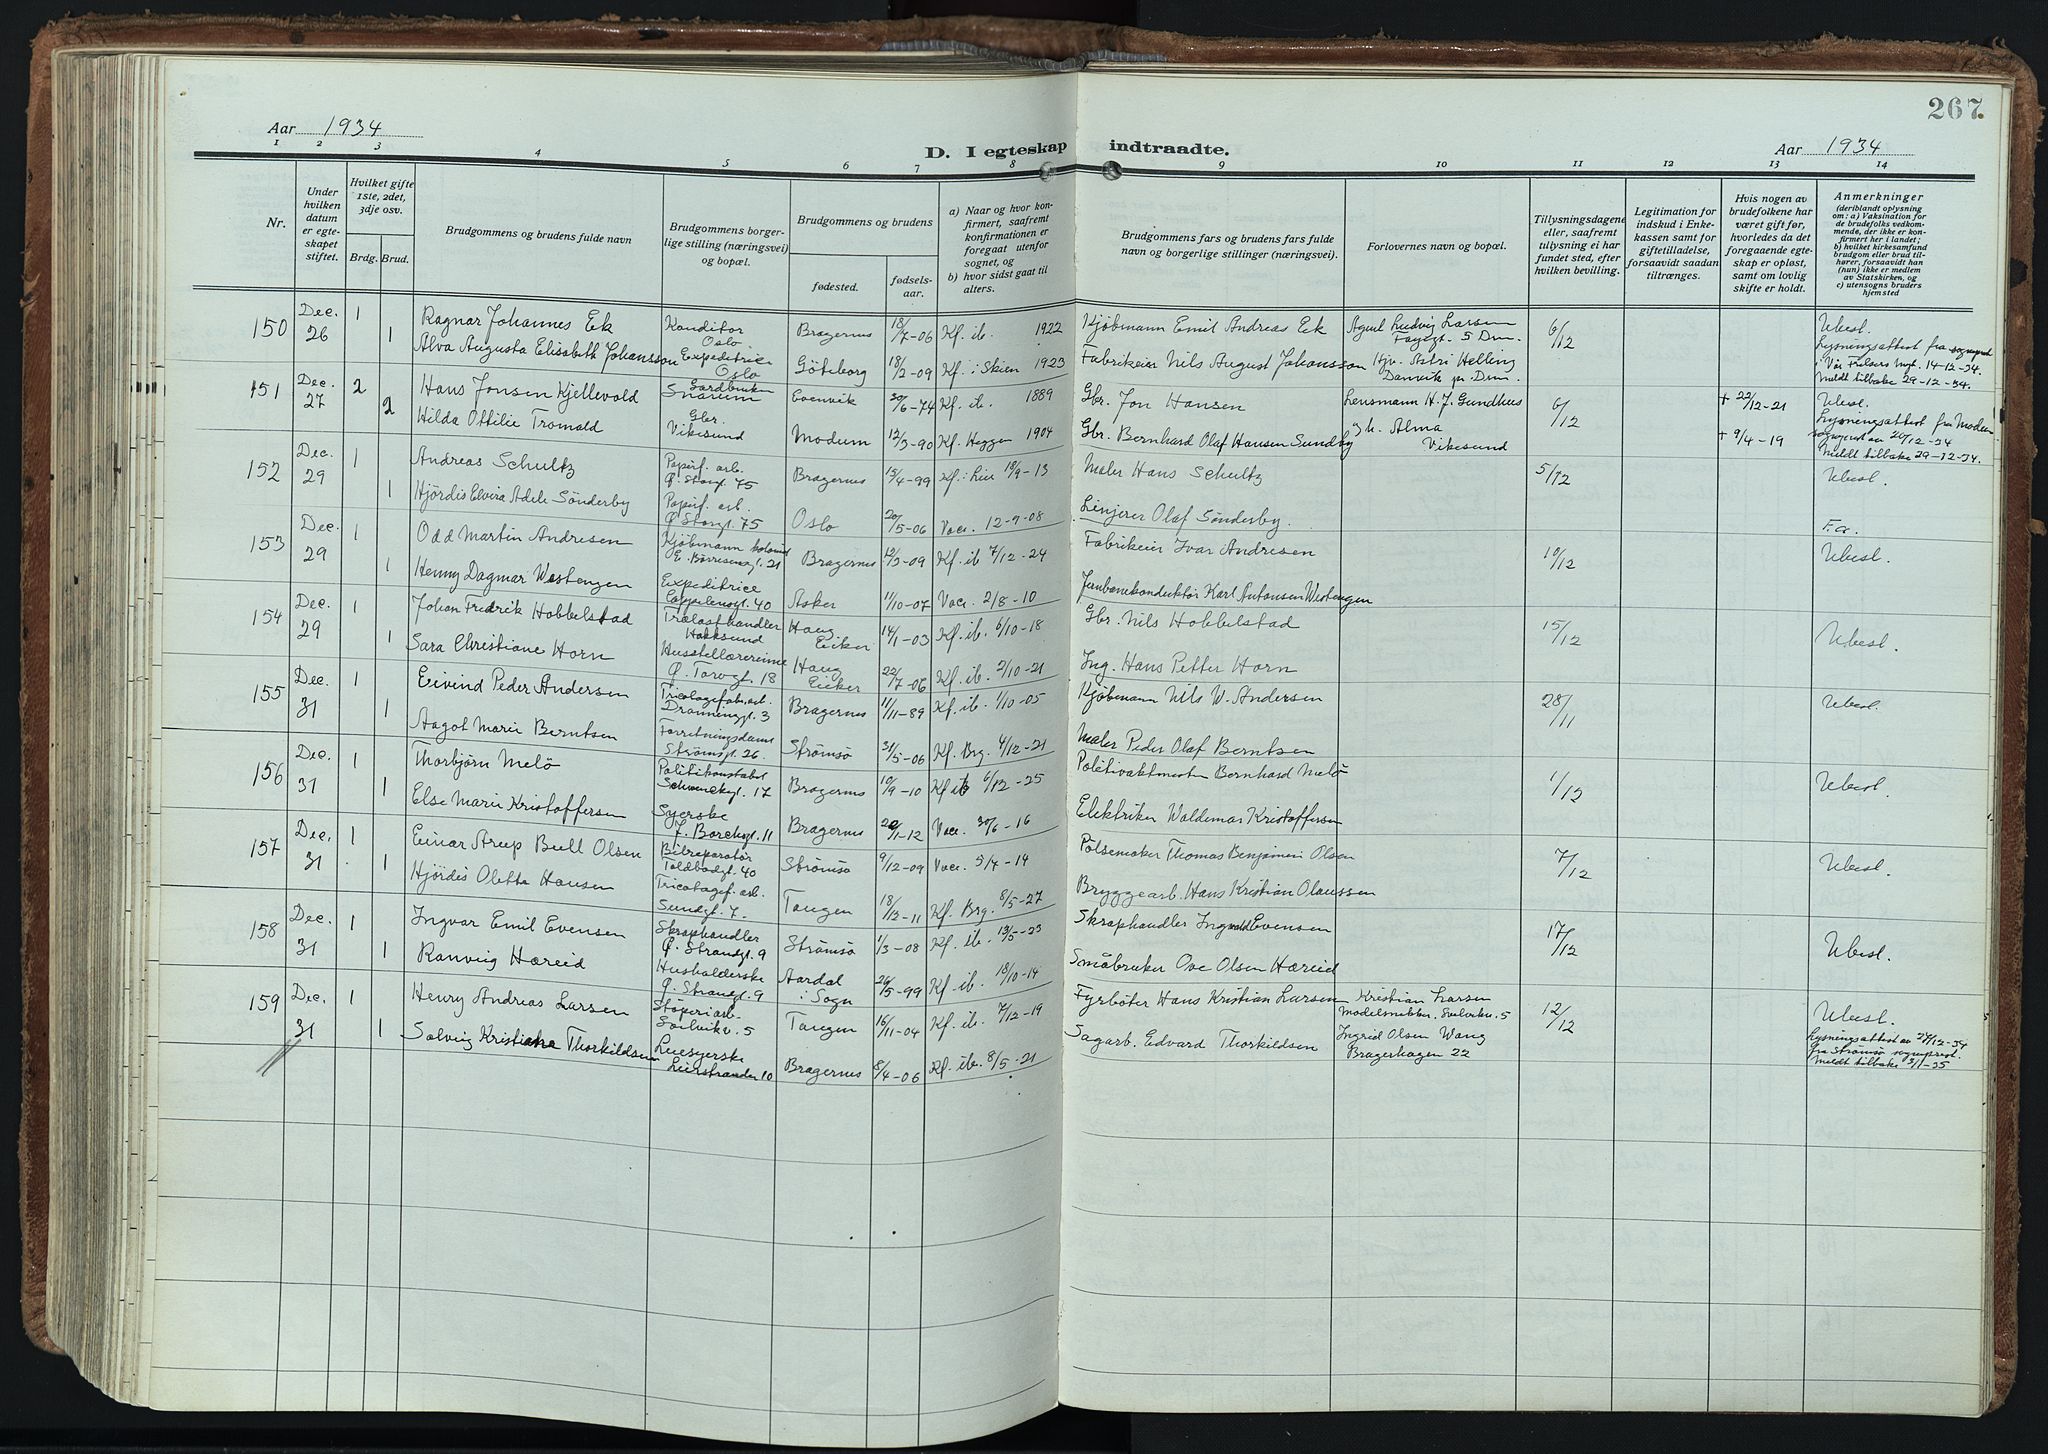 267.
Aar 1934
D. I egteskap indtraadte.
Aar 1934
1 2 3 4 5 6 7 8 9 10 11 12 13 14
Nr.
Under hvilken datum er egteskapet stiftet.
Hvilket gifte 1ste, 2det, 3dje osv.
Brdg. Brud.
Brudgommens og brudens fulde navn
Brudgommens borgerlige stilling (næringsvei) og bopæl.
Brudgommens og brudens
fødested.
fødselsaar.
a) Naar og hvor konfirmert, saafremt konfirmationen er foregaat utenfor sognet, og
b) hvor sidst gaat til alters.
Brudgommens fars og brudens fars fulde navn og borgerlige stillinger (næringsvei).
Forlovernes navn og bopæl.
Tillysningsdagene eller, saafremt tillysning ei har fundet sted, efter hvilken bevilling.
Legitimation for indskud i Enkekassen samt for giftetilladelse, forsaavidt saadan tiltrænges.
Hvis nogen av brudefolkene har været gift før, hvorledes da det foregaaende egteskap er opløst, samt om lovlig skifte er holdt.
Anmerkninger
(deriblandt oplysning om: a) Vaksination for de brudefolks vedkommende, der ikke er konfirmert her i landet; b) hvilket kirkesamfund brudgom eller brud tilhører, forsaavidt han (hun) ikke er medlem av Statskirken, og c) utensogns bruders hjemsted
150 Dec. 26 1 Ragnar Johannes Ek Konditor Oslo Bragernes 18/7-06 Kf. ib. 1922 Kjøbmann Emil Andreas Ek Ludvig Larsen 5 Drm. 6/12 Ubesl.
1 Alva Augusta Elisabeth Johansson Expeditrice Oslo Göteborg 18/2-09 Kf. i Skien 1923 Fabrikeier Nils August Johansson Hjv. Astri Helling Danvik pr Drm. Lysningsattest fra sogneprest i Vår Frelsers mgt. 14-12-34. Meldt tilbake 29-12-34.
151 Dec. 27 2 Hans Jonsen Kjellevold Gardbruker Snarum Evenvik 30/6-74 Kf. ib. 1889 Gbr. Jon Hansen Lensmann H. J. Gundhus 6/12 + 22/12-21 Ubesl.
2 Hilda Ottilie Tromald Gbr. Vikesund Modum 12/3-90 Kf. Heggen 1904 Gbr. Bernhard Olaf Hansen Sundby Alma Vikesund + 9/4-19 Lysningsattest fra Modum sogneprest av 20/12-34 Meldt tilbake 29-12-34.
152 Dec. 29 1 Andreas Schultz Papirf. arb. Ø. Storgt. 75 Bragernes 15/4-99 Kf. i Lier 18/9-13 Maler Hans Schultz 5/12 Ubesl.
1 Hjördis Elvira Adele Sönderby Papirf. arb. Ø Storgt. 75 Oslo 20/5-06 Vac. 12-9-08 Linjerer Olaf Sønderby. Fa.
153 Dec. 29 1 Odd Martin Andresen Kjøbmann E. Børresensgt. 21 Bragernes 12/3-09 Kf. ib 7/12-24 Fabrikeier Ivar Andresen 10/12 Ubesl.
1 Henny Dagmar Westengen Expeditrice Cappelensgt. 40 Asker 11/10-07 Vac. 2/8-10 Jernbanekonduktør Karl Antonsen Westengen
154 Dec. 29 1 Johan Fredrik Hobbelstad Trælasthandler Hokksund Haug Eiker 14/1-03 Kf. ib. 6/10-18 Gbr. Nils Hobbelstad 15/12 Ubesl.
1 Sara Christiane Horn Husstellærerinne Ø. Torvgt. 18 Haug Eiker 22/7-06 Kf. ib. 2/10-21 Ing. Hans Petter Horn
155 Dec. 31 1 Eivind Peder Andersen Tricotagefabr. arb. Dronninggt. 3 Bragernes 11/11-89 Kf. ib. 1/10-05 Kjøbmann Nils W. Andersen 28/11 Ubesl.
1 Aagot Marie Berntsen Forretningsdame Strømsgt. 26. Strømsø 31/5-06 Kf. Brg. 4/12-21 Maler Peder Olaf Berntsen
156 Dec. 31 1 Thorbjörn Melö Politikonstabel Schwenckegt. 17 Bragernes 10/9-10 Kf ib 6/12-25 Politivaktmester Bernhard Melö 1/12 Ubesl.
1 Else Marie Kristoffersen Syerske J. Borchsgt. 11 Bragernes 20/1-12 Vac. 30/6-16 Elektriker Waldemar Kristoffersen
157 Dec. 31 1 Einar Arup Bull Olsen Bilreparatør Toldbodgt. 40 Strömsö 9/12-09 Vac. 5/4-14 Pölsemaker Thomas Benjamin Olsen 7/12 Ubesl.
1 Hjördis Oletta Hansen Tricotagef. arb. Sundgt. 7. Tangen 18/12-11 Kf. Brg. 8/5-27 Bryggearb. Hans Kristian Olaussen
158 Dec. 31 1 Ingvar Emil Evensen Skraphandler Ø. Strandgt. 9 Strømsø 1/3-08 Kf. ib. 13/5-23 Skraphandler Ingvald Evensen 17/12 Ubesl.
1 Ranveig Hæreid Husholderske Ø. Strandgt. 9 Aardal i Sogn 26/5-99 Kf. ib. 18/10-14 Småbruker Ove Olsen Hæreid
159 Dec. 31 1 Henry Andreas Larsen Støperiarb. Svelvikv. 5 Tangen 16/11-04 Kf. ib. 7/12-19 Fyrbøter Hans Kristian Larsen Kristian Larsen Modelsnekker. Svelvikv. 5 12/12 Ubesl.
1 Solveig Kristiane Thorkildsen Lissesyerske Lierstranden 10 Bragernes 8/4-06 Kf. ib. 8/5-21 Sagarb. Edvard Thorkildsen Ingrid Olsen Wang Bragerhagen 22 Lysningsattest av 27/12-34 fra Strømsø sogneprest. Meldt tilbake 3/1-35